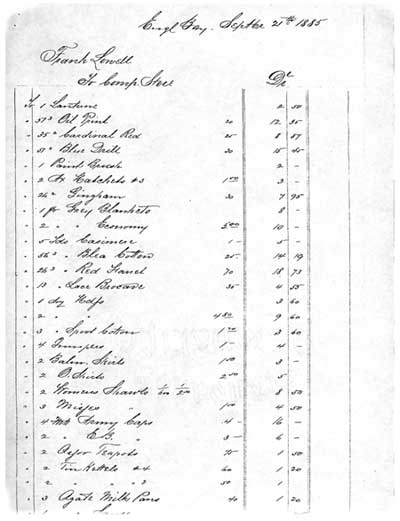 Engl Bay. Septbr 21th 1885
Frank Lowell
To Comp Store Dr
To 1 Lantern 2 50
" 57 3 " Oil Print 20 12 35
" 35 " Cardinal Red 25 8 87
" 57 " Blue Drill 30 15 45
" 1 Paint Brush 2 -
" 2 Hatchets #3 1 50 3 -
" 26 " Gingham 30 7 95
" 1 pr Grey Blankets 8 -
" 2 " " Economy 5 00 10 -
" 5 Yds Casimere 1 - 5 -
" 56 3 " Blea Cotton 25 14 19
" 26 3 " Red Flanel 70 18 73
" 13 " Lace Brocade 35 4 55
" 1 dz Hdfs 3 60
" 2 " " 4 80 9 60
" 3 " Spool Cotton 1 20 3 60
" 4 Jumpers 1 - 4 -
" 2 Shirts 1 50 3 -
" 2 O. Shirts 2 50 5 -
" 2 Womens Shawls 8 50
" 3 Misses 1 50 4 50
" 4 Army Caps 4 - 16 -
" 2 " E.B. " 3 - 6 -
" 2 Teapots 75 1 50
" 2 Tin Kettels #4 60 1 20
" 2 " " 3 50 1
" 3 Agate Milk Pans 40 1 20